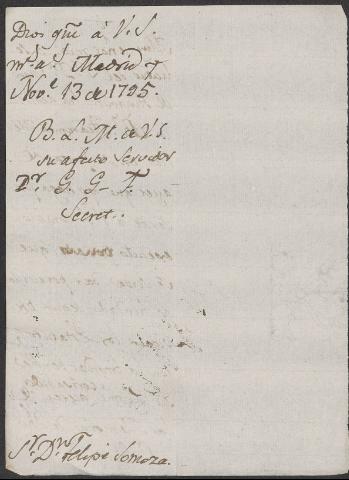 Dios gũe á V. S.
m.s a.s Madrid y
Nov.e 13 de 1795.
B. L. M. de V. S.
su afecto Servidor
D.r G. G. F.
Secret..
S.r D.n Felipe Somoza.